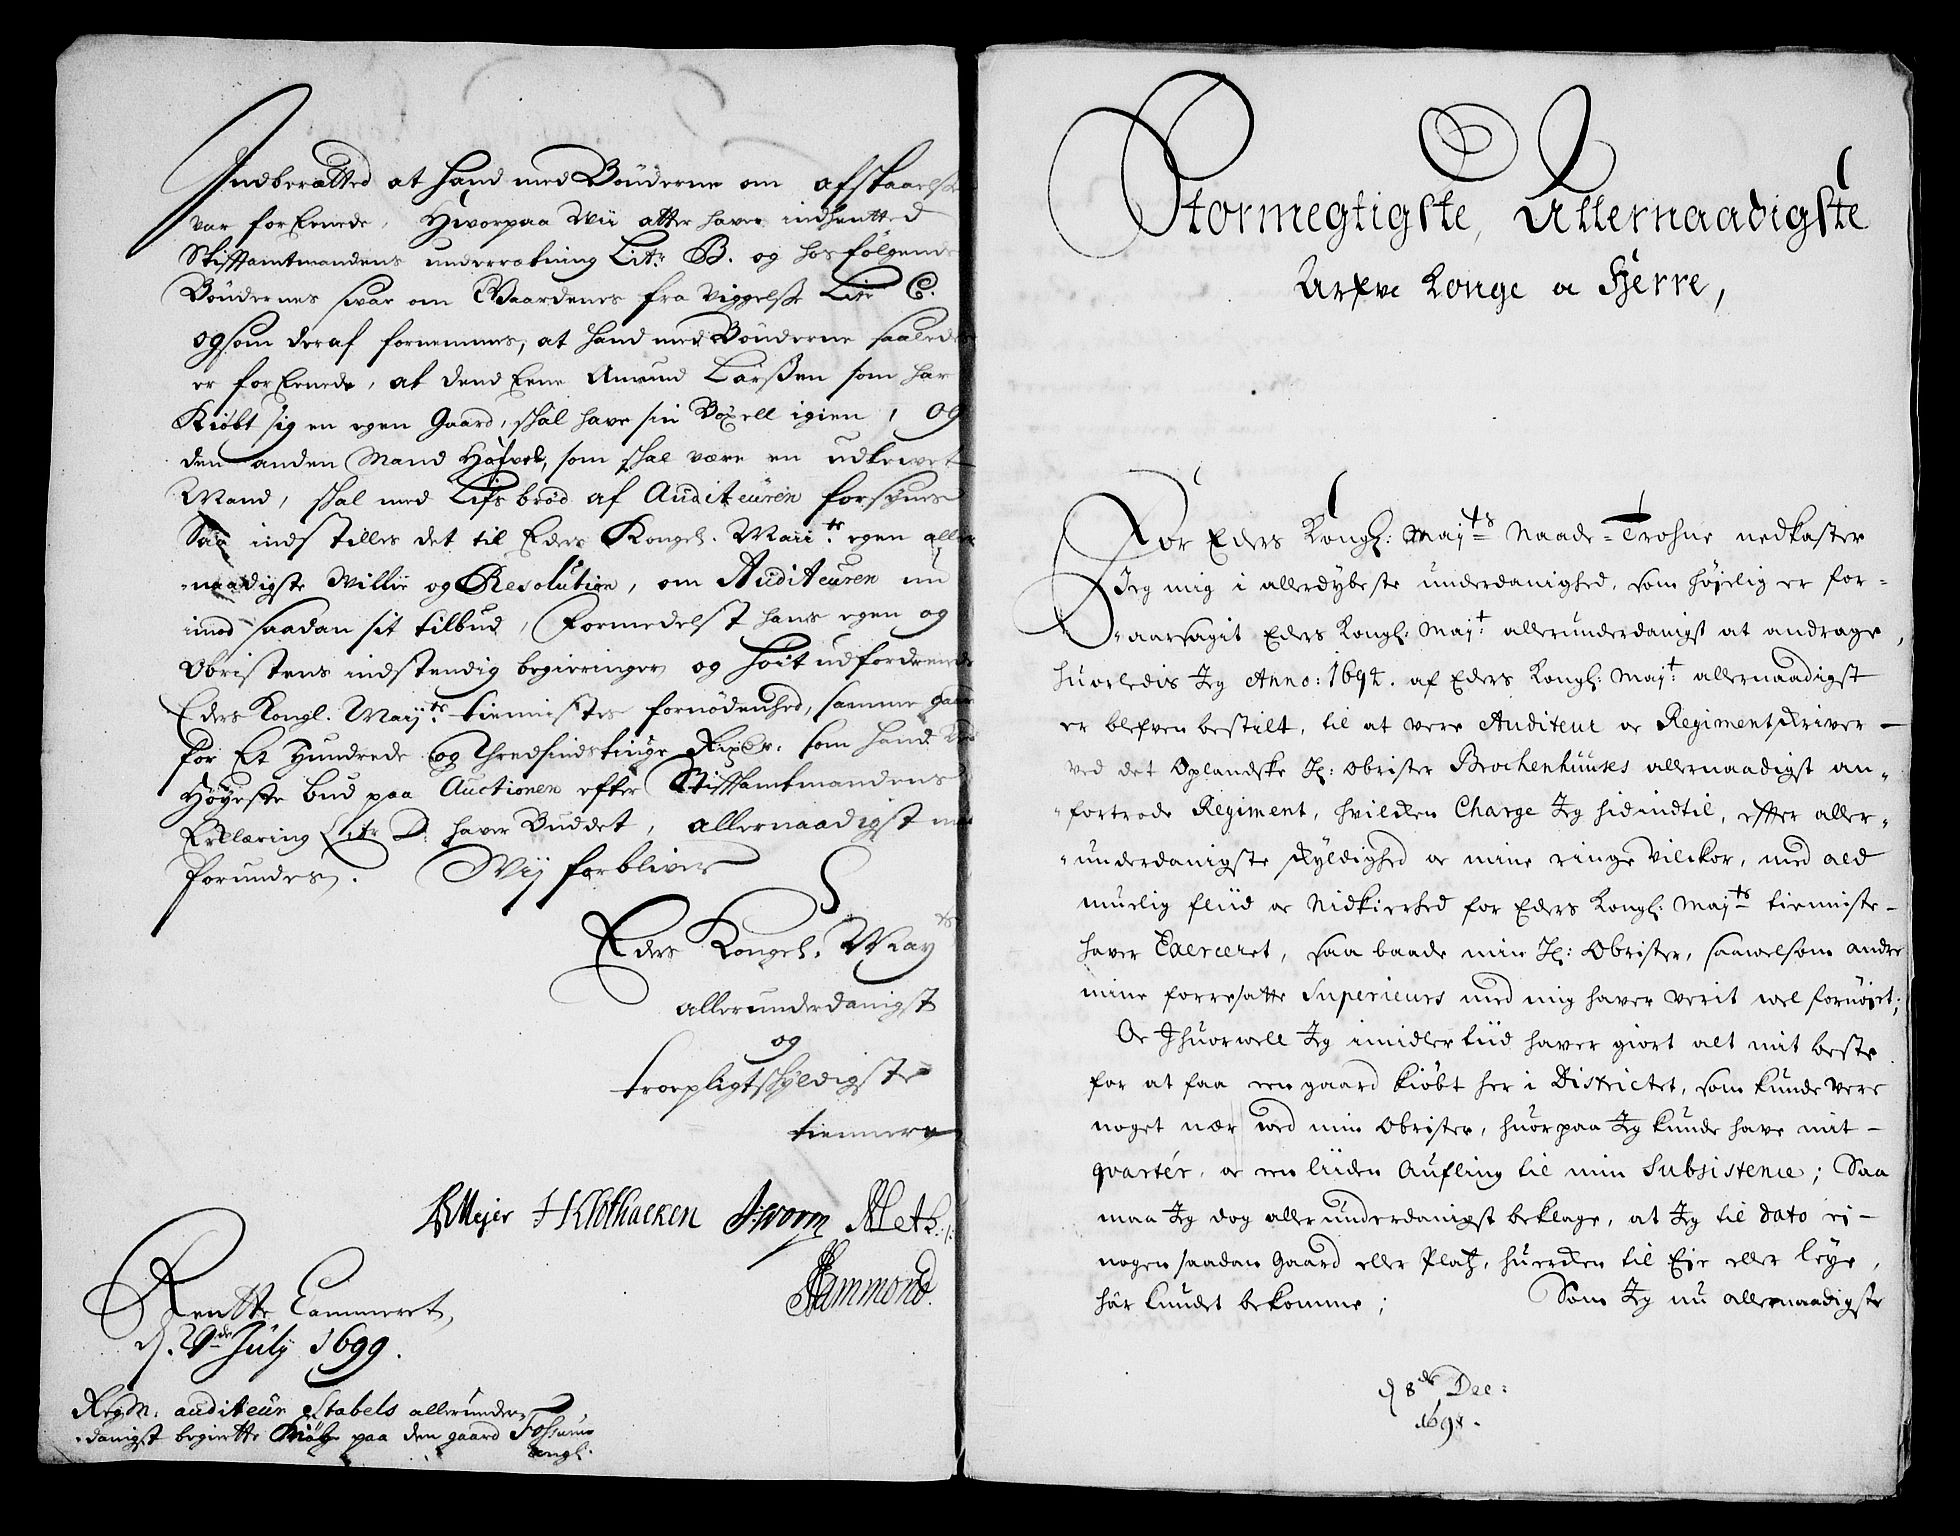 Indberætted at hand med Bønderne om afskaaels
var forEenede, Hworpaa Wii atter haver indhentted
Stifftamtmandens underretning Litr B. og hos følgende
Bøndernes svar om Gaardenes fra viggelse Litr C.
og som deraf fornemmes, at hand med Bønderne saalede
er forEenede, at dend Eene Amund Larssen som har
Kiøbt sig en egen Gaard, skal have sin Bøxell igien, og
den anden Mand, som skal være en udlevet
Mand, skal med Lifs brød af Auditeuren forsynes
Saa indstilles det til Eders Kongel. Maii.ts egen aller
-naadigste Willie og Resolution, om Auditeuren nu
imod saadan sit tilbud, Formedelst hans egen og
Obristens indstendig begieringer og høit udfordrende
Eders Kongl. Maij.ts tiennistes fornødenhed, samme gaar
for Et Hundrede og Thredsindstiuge Rixdr. som hand
Høyeste bud paa Auctionen efter Stifftamtmandens
Erklæring Litr D. haver Buddet, allernaadigst
forundes. Wij forbliver
Eders Kongel. May.ts
allerunderdanigst
og
troepligtskyldigste
tiennere
Meyer H Klothacken J. Worm Meth.
Hammond.
Rentte Cammeret,
d. 29de July 1699.
Regm: auditeur Stabels allerunder-
-danigst begierte Kiøb paa den gaard Fossum
Stormegtigste, Allernaadigste
Arfve Konge oc Herre,
For Eders Kongl: Maj.ts Naade-Trohne nedkaster
Jeg mig i allerdybeste underdanighed, som høyelig er for-
-aarsagit Eders Kongl: Maj.t allerunderdanigst at andrage,
huorledis Jeg Anno: 1692. af Eders Kongl: Maj.t allernaadigst
er blefven bestilt, til at vere Auditeur oc Regimentskriver
ved det Oplandske H: Obrister Brochenhuuses allernaadigst an-
-fortrode Regiment, hvilcken Charge Jeg hidindtil, effter aller-
-underdanigste skyldighed oc mine ringe vilckor, med ald
muelig fliid oc Nidkierhed for Eders Kongl: Maj.ts tienniste
haver Exerceret, saa baade min H: Obrister, saawelsom andre
mine forresatte Superieurs med mig haver verit wel fornøyet;
Oc Ihuorwell Jeg imidlertiid haver giort alt mit beste
for at faa een gaard kiøbt her i Districtet, som kunde vere
noget nær wed min Obrister, huorpaa Jeg kunde have mit
qvartér, oc een liiden Aufling til min Subsistence; Saa
maa Jeg dog allerunderdanigst beklage, at Jeg til dato ei
nogen saadan Gaard eller Platz, huercken til Eie eller leye,
hâr kundet bekomme; Som Jeg nu allernaadigste
d 8de Dec:
1698.